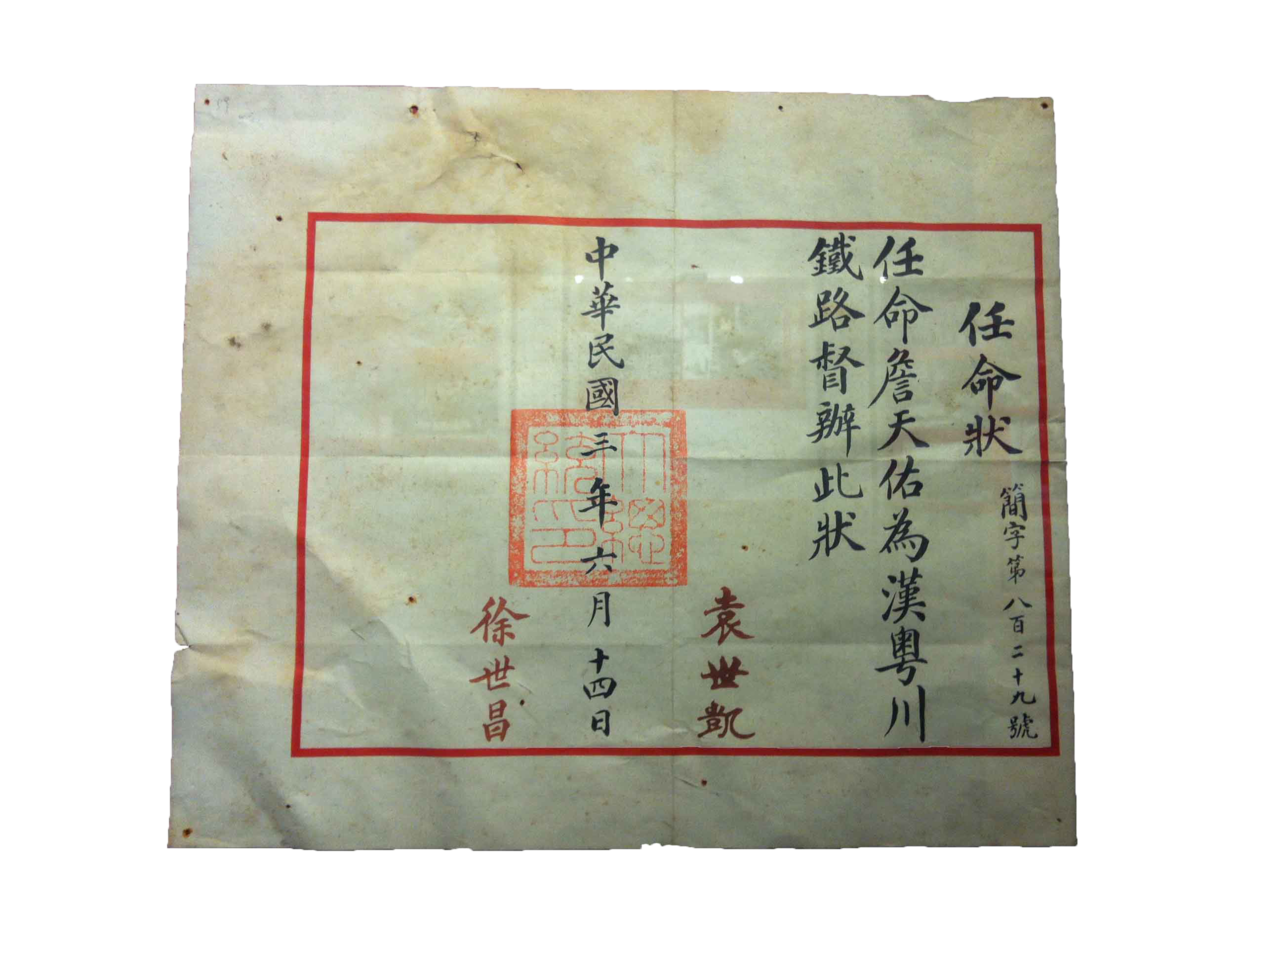 任命狀
簡字第八百二十九號
任命詹天佑為漢粵川
鐵路督辦此狀
袁世凱
中華民國三年六月十四日
大總統印
徐世昌